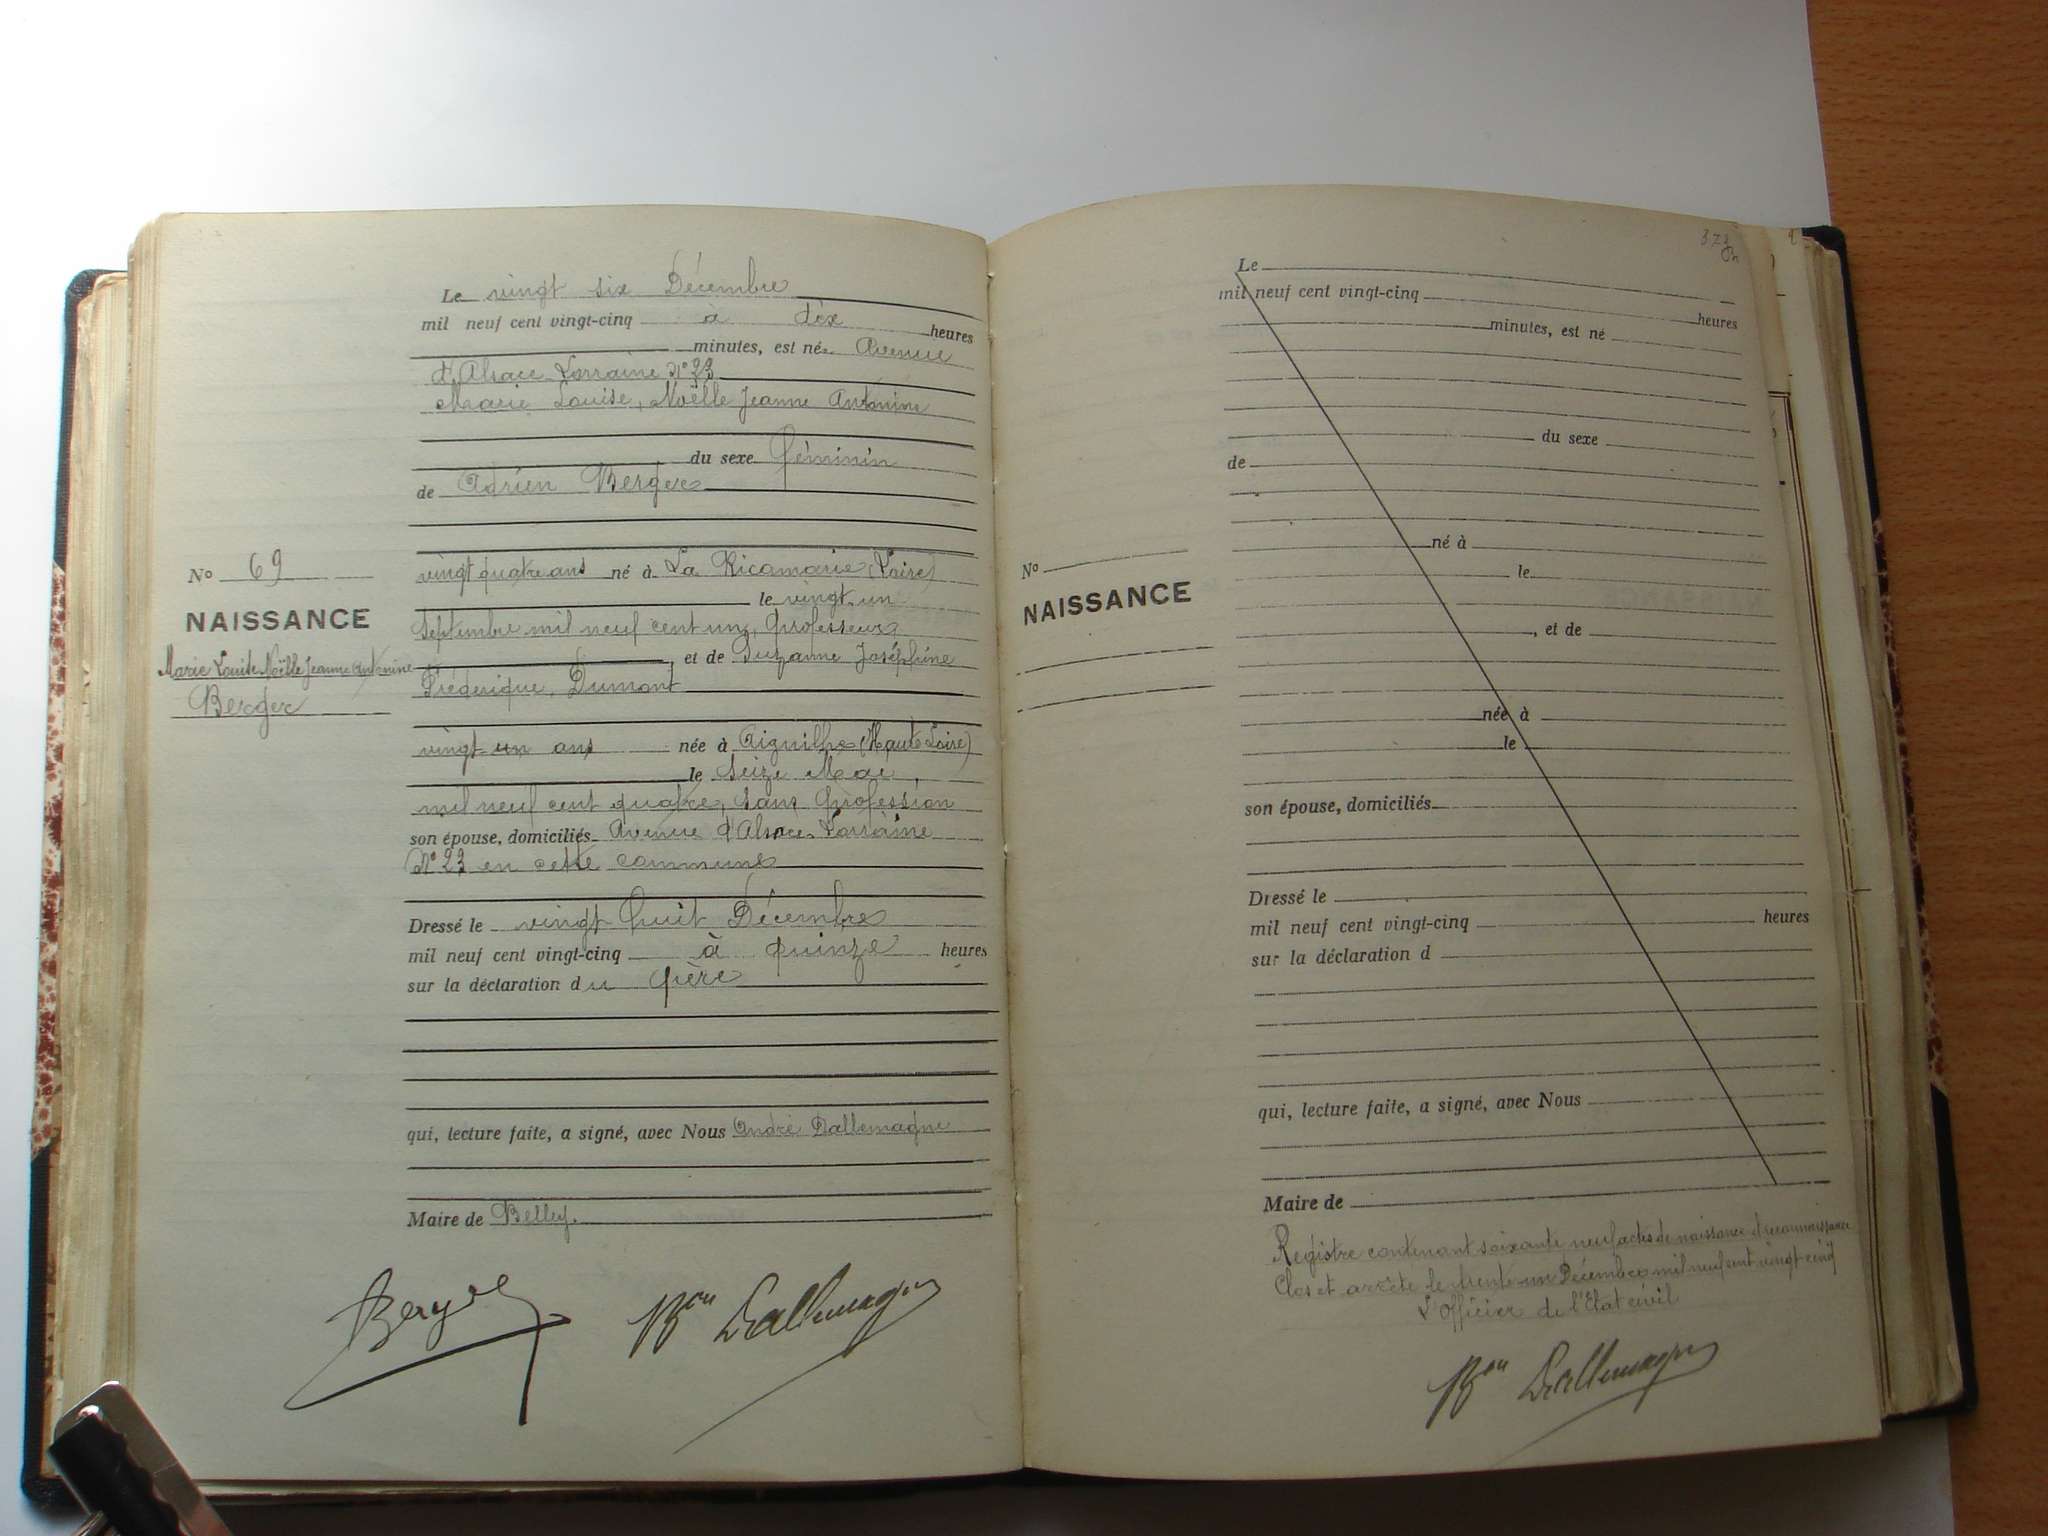 Le vingt six Décembre
mil neuf cent vingt-cinq à dix heures
minutes, est née Avenue
d'Alsace Lorraine N° 23
Marie Louise, Noëlle Jeanne Antonine
du sexe féminin
de Adrien Berger
vingt quatre ans né à La Ricamarie (Loire)
le vingt un
Septembre mil neuf cent un, Professeur
, et de Suzanne Joséphine
Fréderique, Dumont
vingt un ans née à Aiguilhe (Haute Loire)
le seize Mai,
mil neuf cent quatre, sans profession
son épouse, domiciliés Avenue d'Alsace Lorraine
N° 23 en cette commune
Dressé le vingt huit Décembre
mil neuf cent vingt-cinq à quinze heures
sur la déclaration du père
qui, lecture faite, a signé, avec Nous André Dallemagne
Maire de Belley.
No 69
NAISSANCE
Marie Louise Noëlle Jeanne Antonine
Berger
Berger
Bon Dallemagne
373
Le
mil neuf cent vingt-cinq
heures
minutes, est né
du sexe
de
né à
le
, et de
née à
le
son épouse, domiciliés
Dressé le
mil neuf cent vingt-cinq heures
sur la déclaration d
qui, lecture faite, a signé, avec Nous
Maire de
No
NAISSANCE
Registre contenant soixante neuf actes de naissance et reconnaissance
Clos et arrêté le trente un Décembre mil neuf cent vingt-cinq
L'Officier de l'Etat civil
Bon Dallemagne